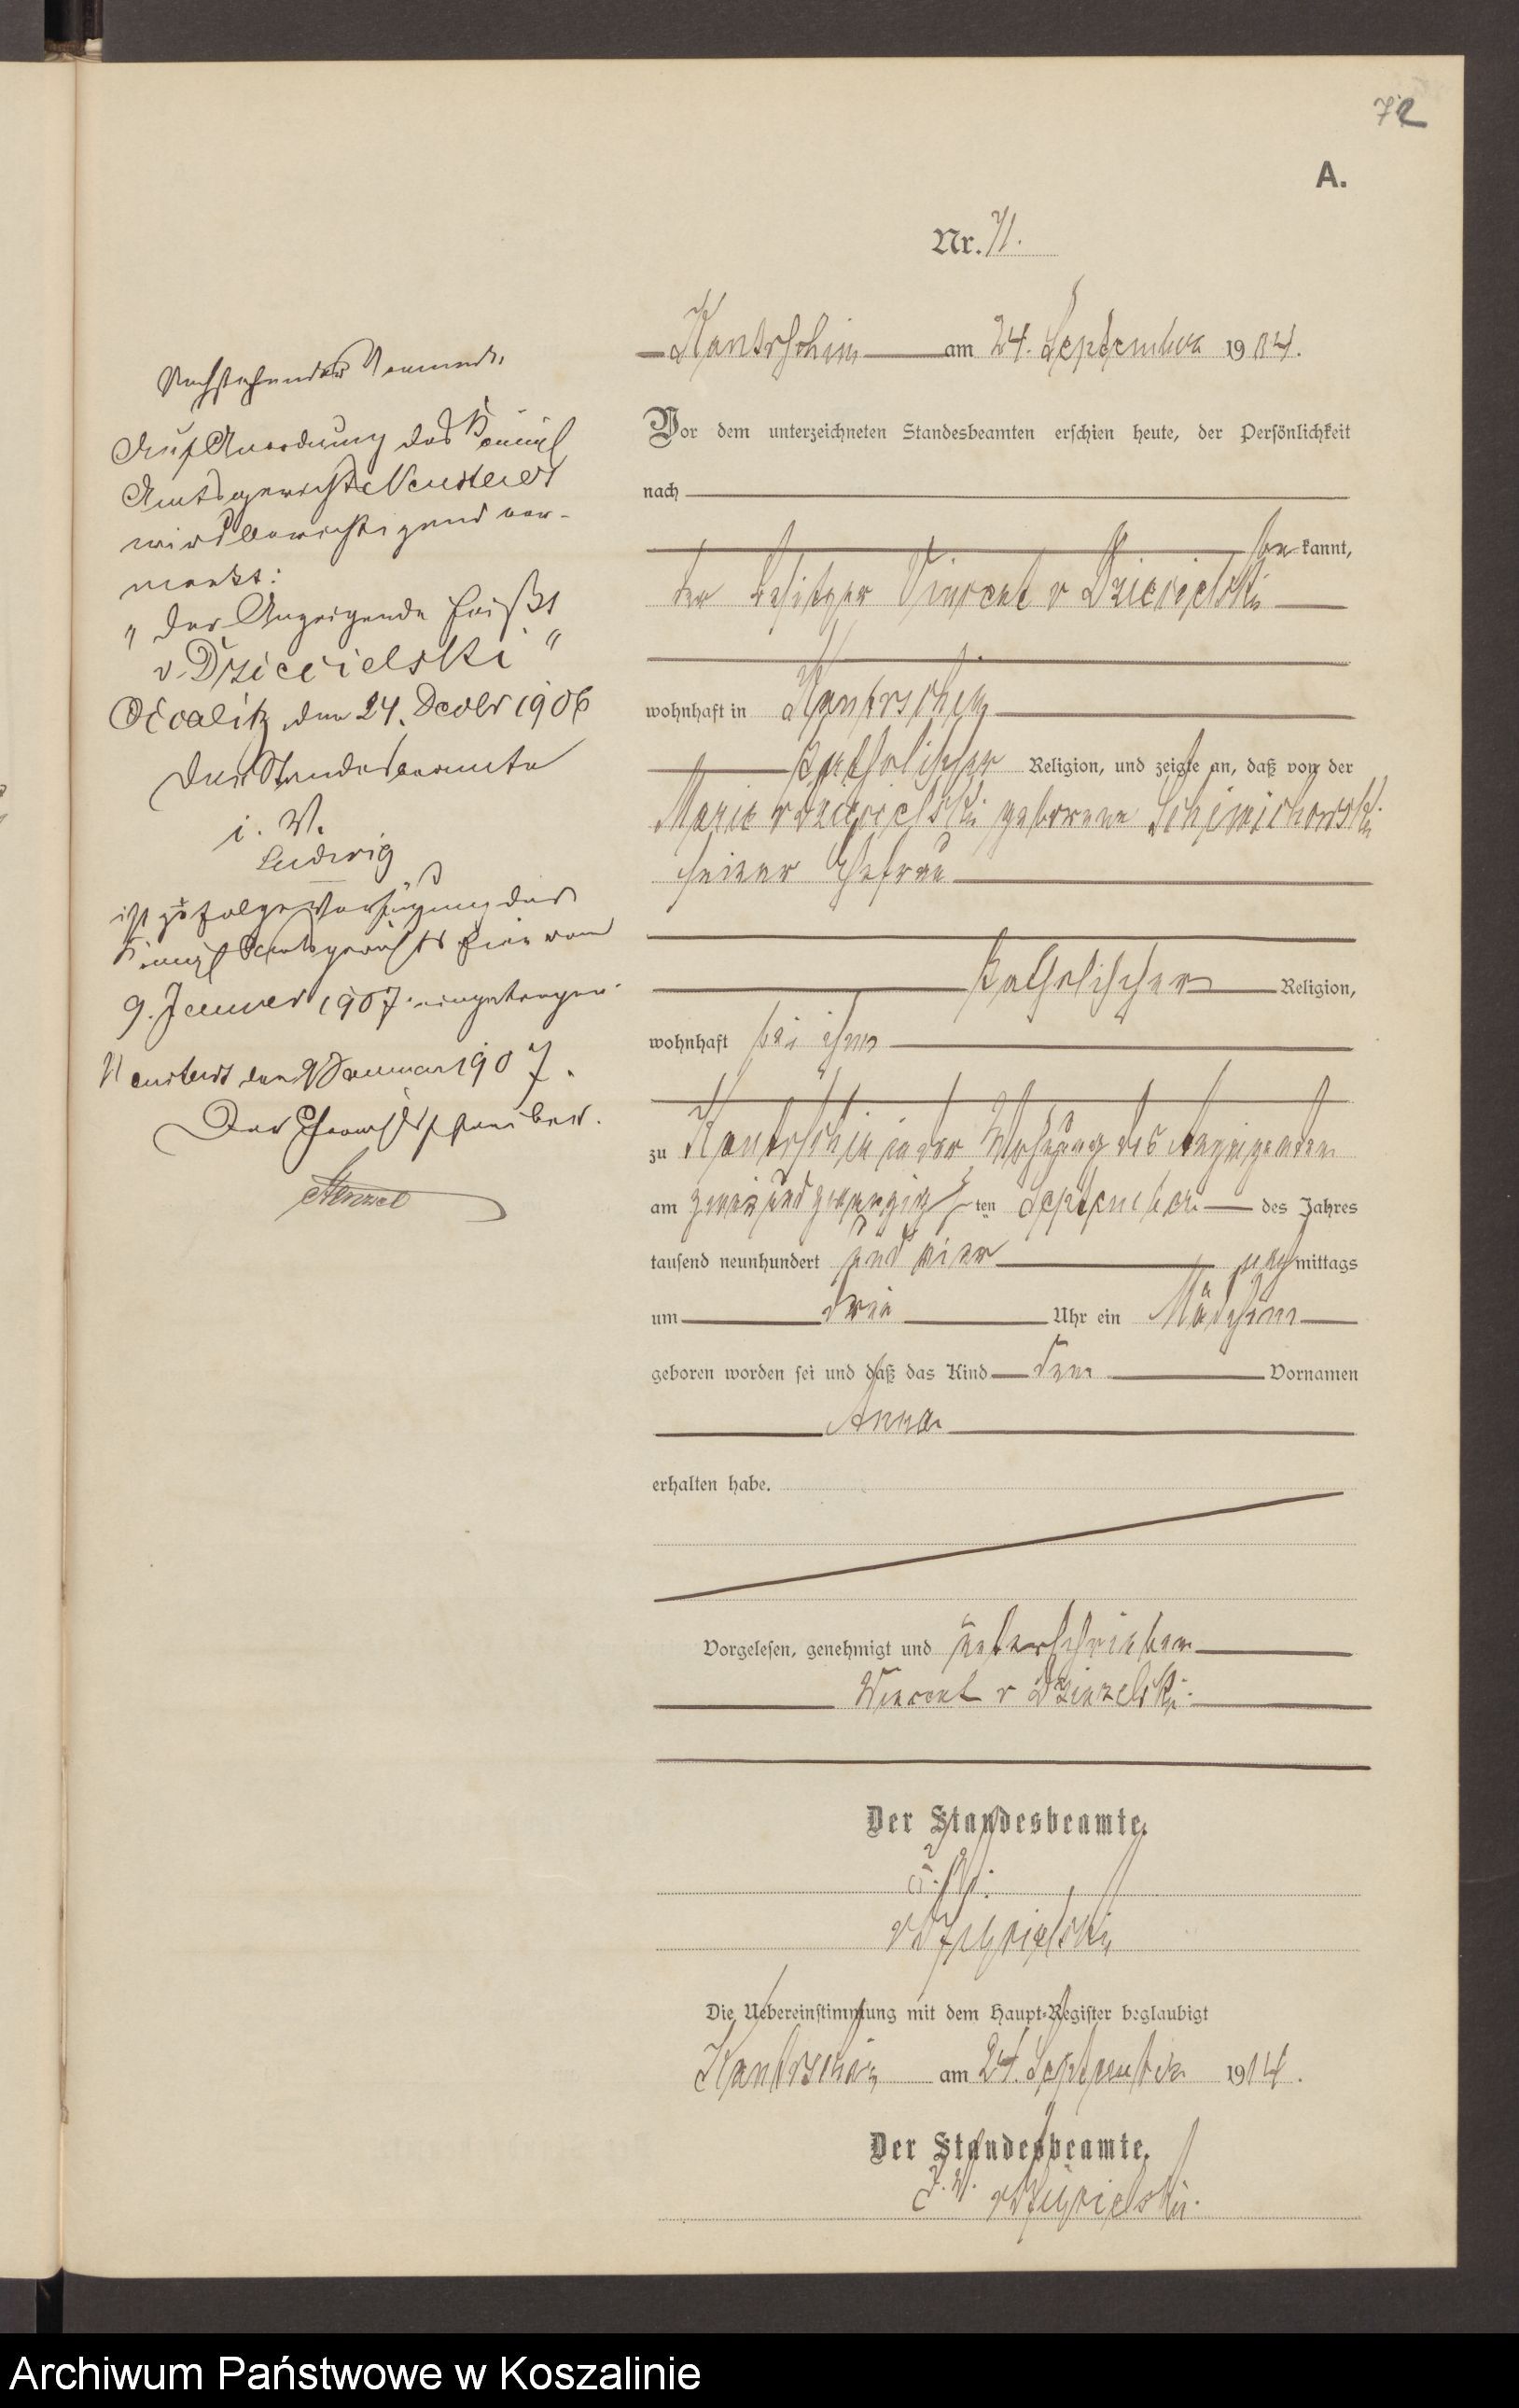 72
A.
Nr. 71.
Kantrschin am 24. September 1904.
Vor dem unterzeichneten Standesbeamten erschien heute, der Persönlichkeit
nach
be kannt,
der Besitzer Vincent v Dziecielski
wohnhaft in Kantrschin
katholischer Religion, und zeigte an, daß von der
Marie v Dziecielski geborene Schimichowski
seiner Ehefrau
katholischer Religion,
wohnhaft bei ihm
zu Kantrschin in der Wohnung des Anzeigenden
am zwei und zwanzig ten September des Jahres
tausend neunhundert und vier nach mittags
um drei Uhr ein Mädchen
geboren worden sei und daß das Kind den Vornamen
Anna
erhalten habe.
Vorgelesen, genehmigt und unterschrieben
Vincent v Dziezelski
Der Standesbeamte.
i. V.
Die Uebereinstimmung mit dem Haupt-Register beglaubigt
Kantrschin am 24. September 1904.
Der Standesbeamte.
J. V.
Nachstehender Vermerk,
Auf Anordnung des Königl
Amtsgerichts Neustadt
wird berichtigend ver-
merkt:
„Der Anzeigende heißt
v. Dziecielski"
den 24. Decbr 1906
Der Standesbeamte
i. V.
Ludwig
ist zufolge Verfügung des
Königl Amtsgerichts hier vom
9. Januar 1907 eingetragen.
Neustadt den 9 Januar 1907.
Der Gerichtsschreiber.
Archiwum Państwowe w Koszalinie